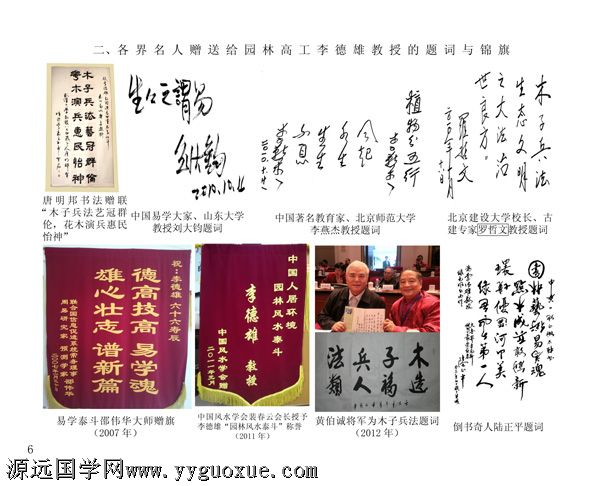 二、各界名人赠送给园林高工李德雄教授的题词与锦旗
木子兵法藝冠群倫
花木演兵惠民怡神
生生之謂易
2010.10.6
植物分五行
风起
水生
生生
不息
木子兵法
生态文明
之大法治
世良方。
羅哲文
唐明邦书法赠联
“木子兵法艺冠群
伦，花木演兵惠民
怡神”
中国易学大家、山东大学
教授刘大钧题词
中国著名教育家、北京师范大学
李燕杰教授题词
北京建设大学校长、古
建专家罗哲文教授题词
祝：李德雄六十六寿辰
德高技高 易学魂
雄心壮志 谱新篇
联合国信息促进系统常务理事
周易研究家 预测学家 邵伟华
二〇〇七年
中国人居环境
园林风水泰斗
李德雄 教授
中国风水学会赠
二〇一一年元月
木子兵法
造福人類
易学泰斗邵伟华大师赠旗
（2007 年）
中国风水学会装春云会长授予
李德雄“园林风水泰斗”称誉
（2011 年）
黄伯诚将军为木子兵法题词
（2012 年）
倒书奇人陆正平题词
6
源远国学网 www.yyguoxue.com